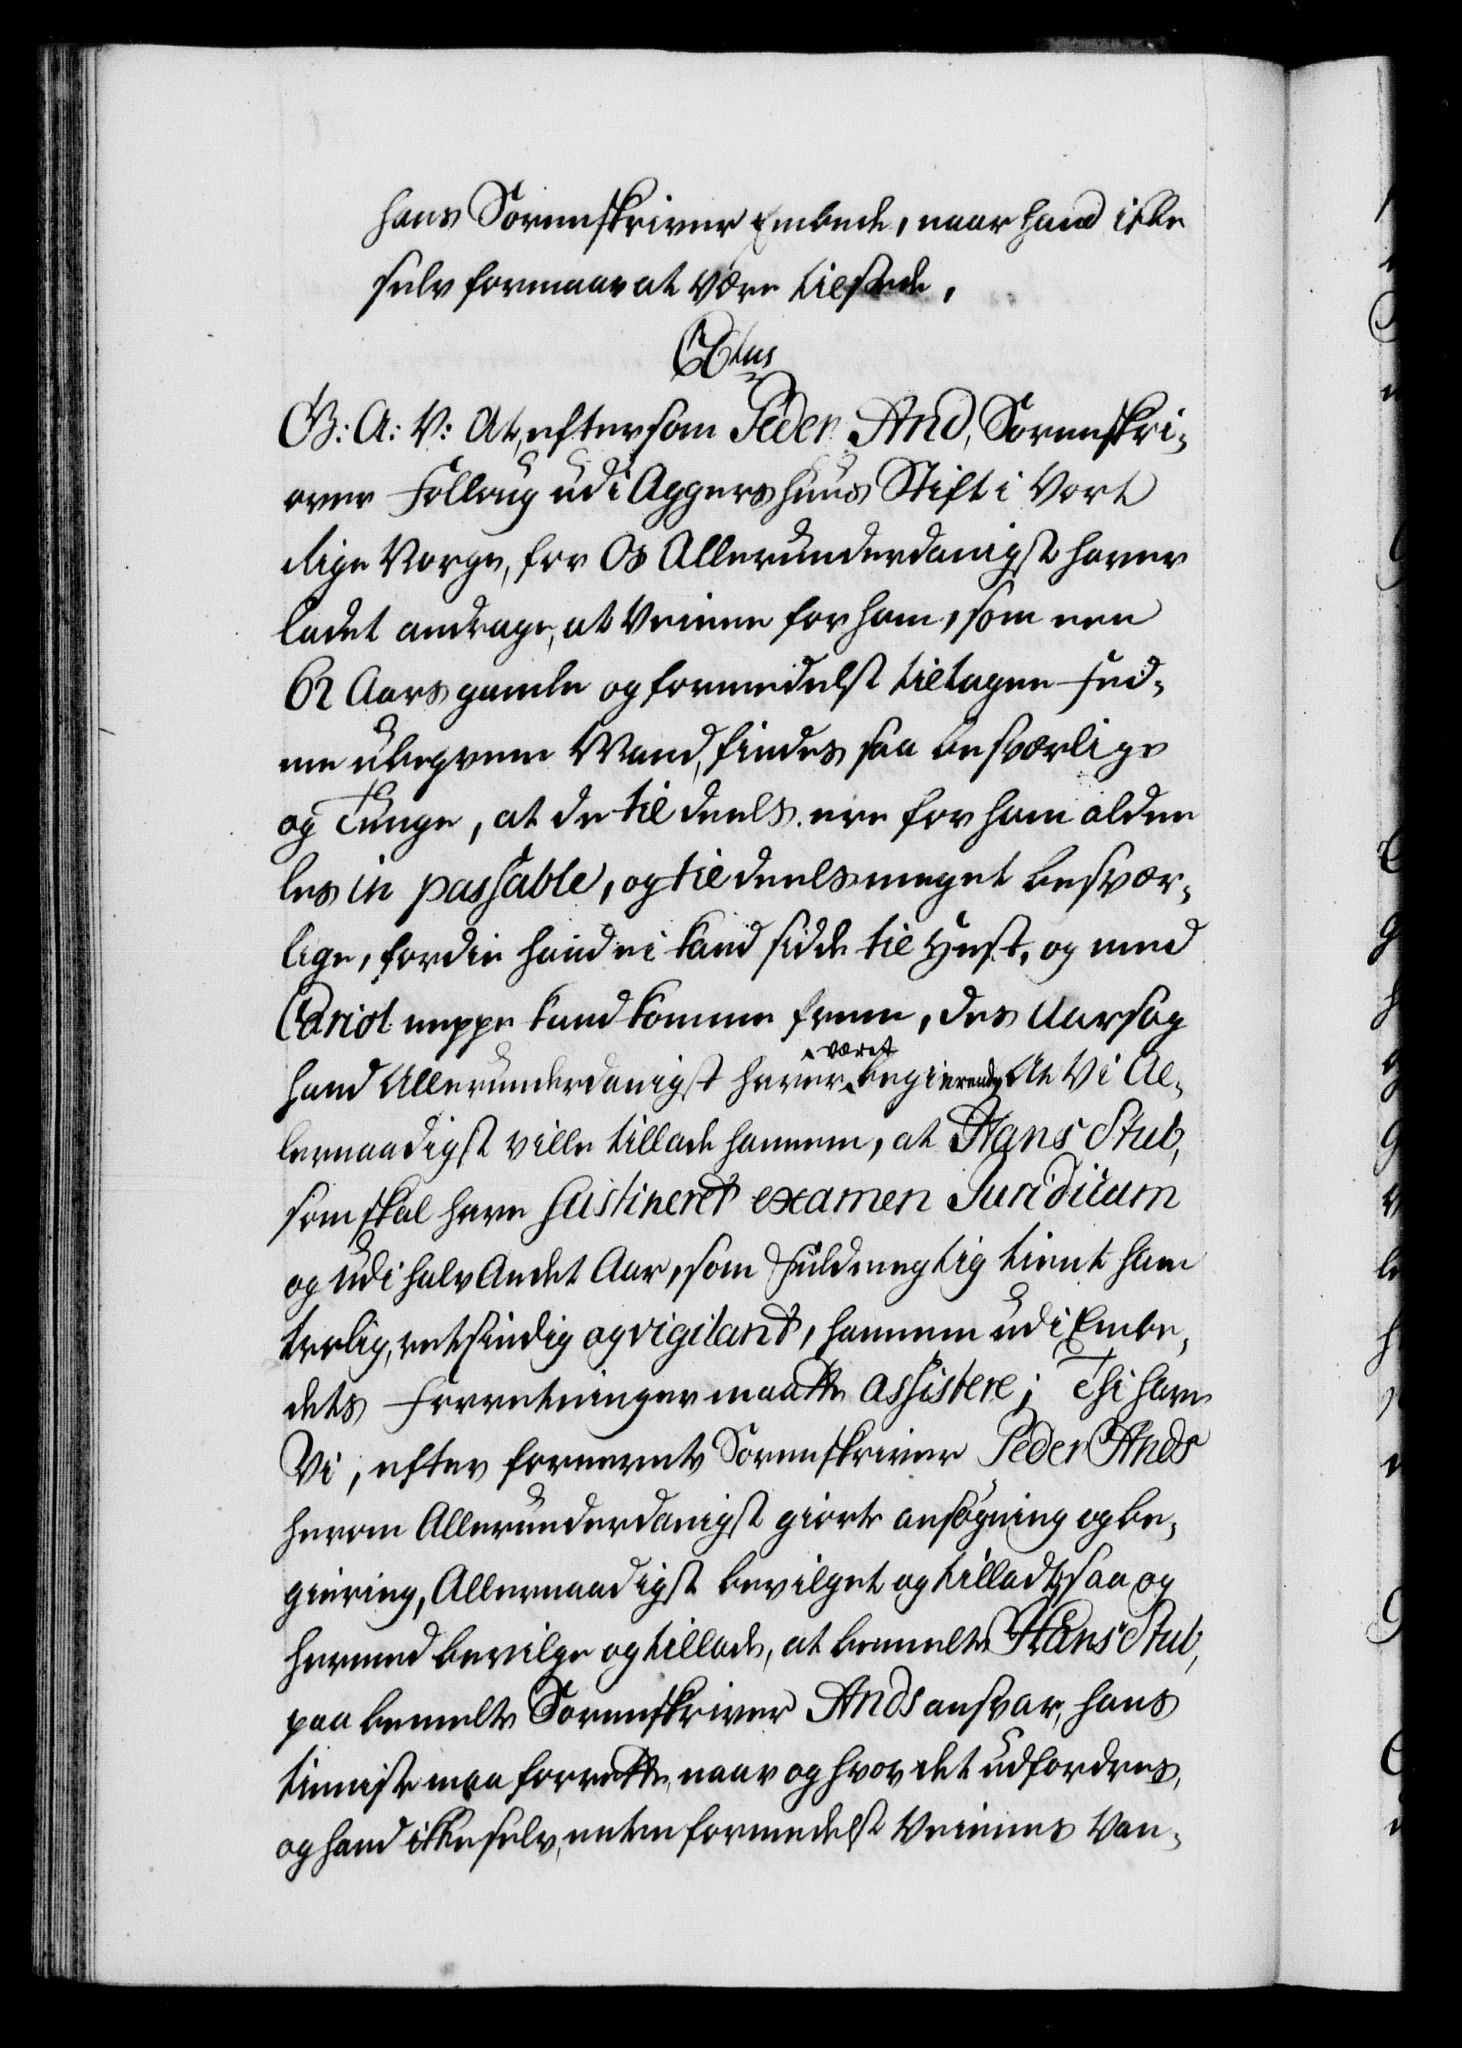 hans Sorenskriver Embede, naar hand ikke
selv formaar at være tilstede,
C6tus
G: A: V: At, eftersom Peder And, Sorenskri-
over Folloug udi Aggershuus Stift i Vort
Rige Norge, for Os Allerunderdanigst haver
ladet andrage, at Veiene for ham, som een
62 Aars gamle og formedelst tiltagen Fed-
me ubeqvem Mand, findes saa besværlige
og Tunge, at de til deels ere for ham aldee
les in passable, og til deels meget besvær-
lige, fordie hand ei kand sidde til Hest, og med
Cariol neppe kand komme frem, des Aarsag
hand Allerunderdanigst haver været begierendes At Vi Al-
lernaadigst ville tillade hannem, at Hans Stub,
som skal have sustineret examen Juridicum
og udi halv Andet Aar, som Fuldmegtig tient ham
troelig, retsindig og vigilant, hannem udi Embe-
dets Forretninger maatte assistere; Thi have
Vi, efter forermte Sorenskriver Peder Ands
herom Allerunderdanigst giorte ansøgning og be-
giering, Allernaadigst bevilget og tilladt, saa og
hermed bevilge og tillade, at bemelte Hans Stub,
paa bemelte Sorenskriver Ands ansvar, hans
tieniste maa forrette, naar og hvor det udfordres,
og hand ikke selv, enten formedelst Veienes Van-